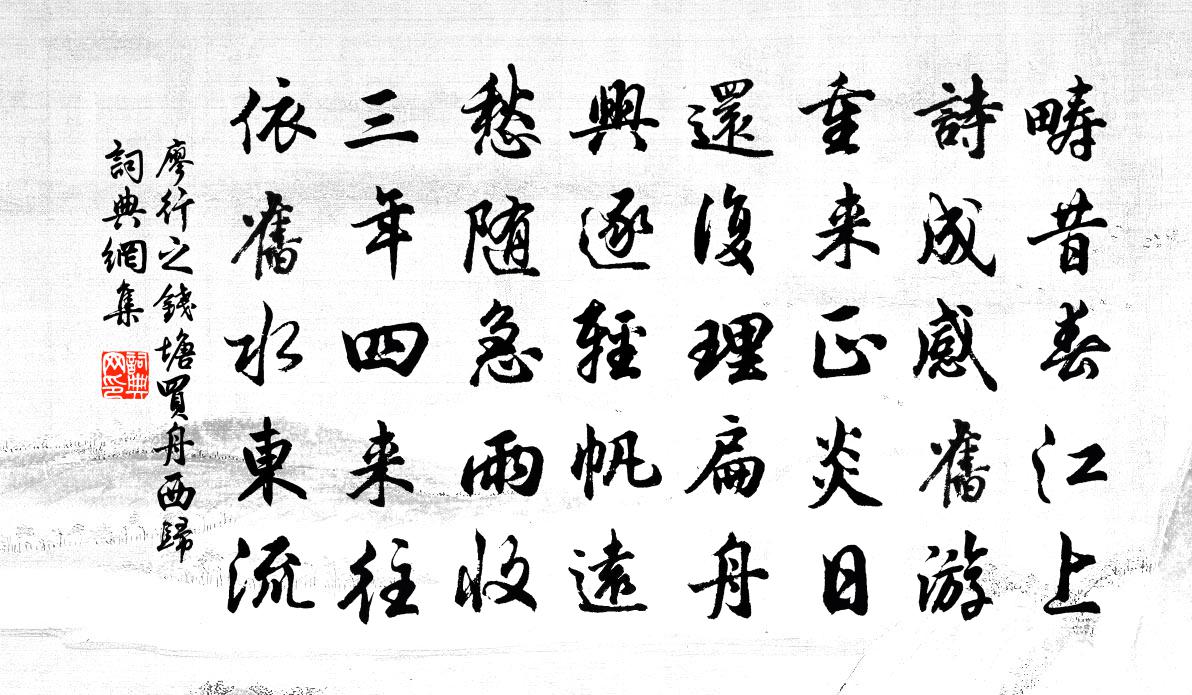 疇昔春江上
詩成感舊游
重来正炎日
還復理扁舟
興逐輕帆遠
愁随急雨收
三年四来往
依舊水東流
廖行之錢塘買舟西歸
詞典網集
詞典网印